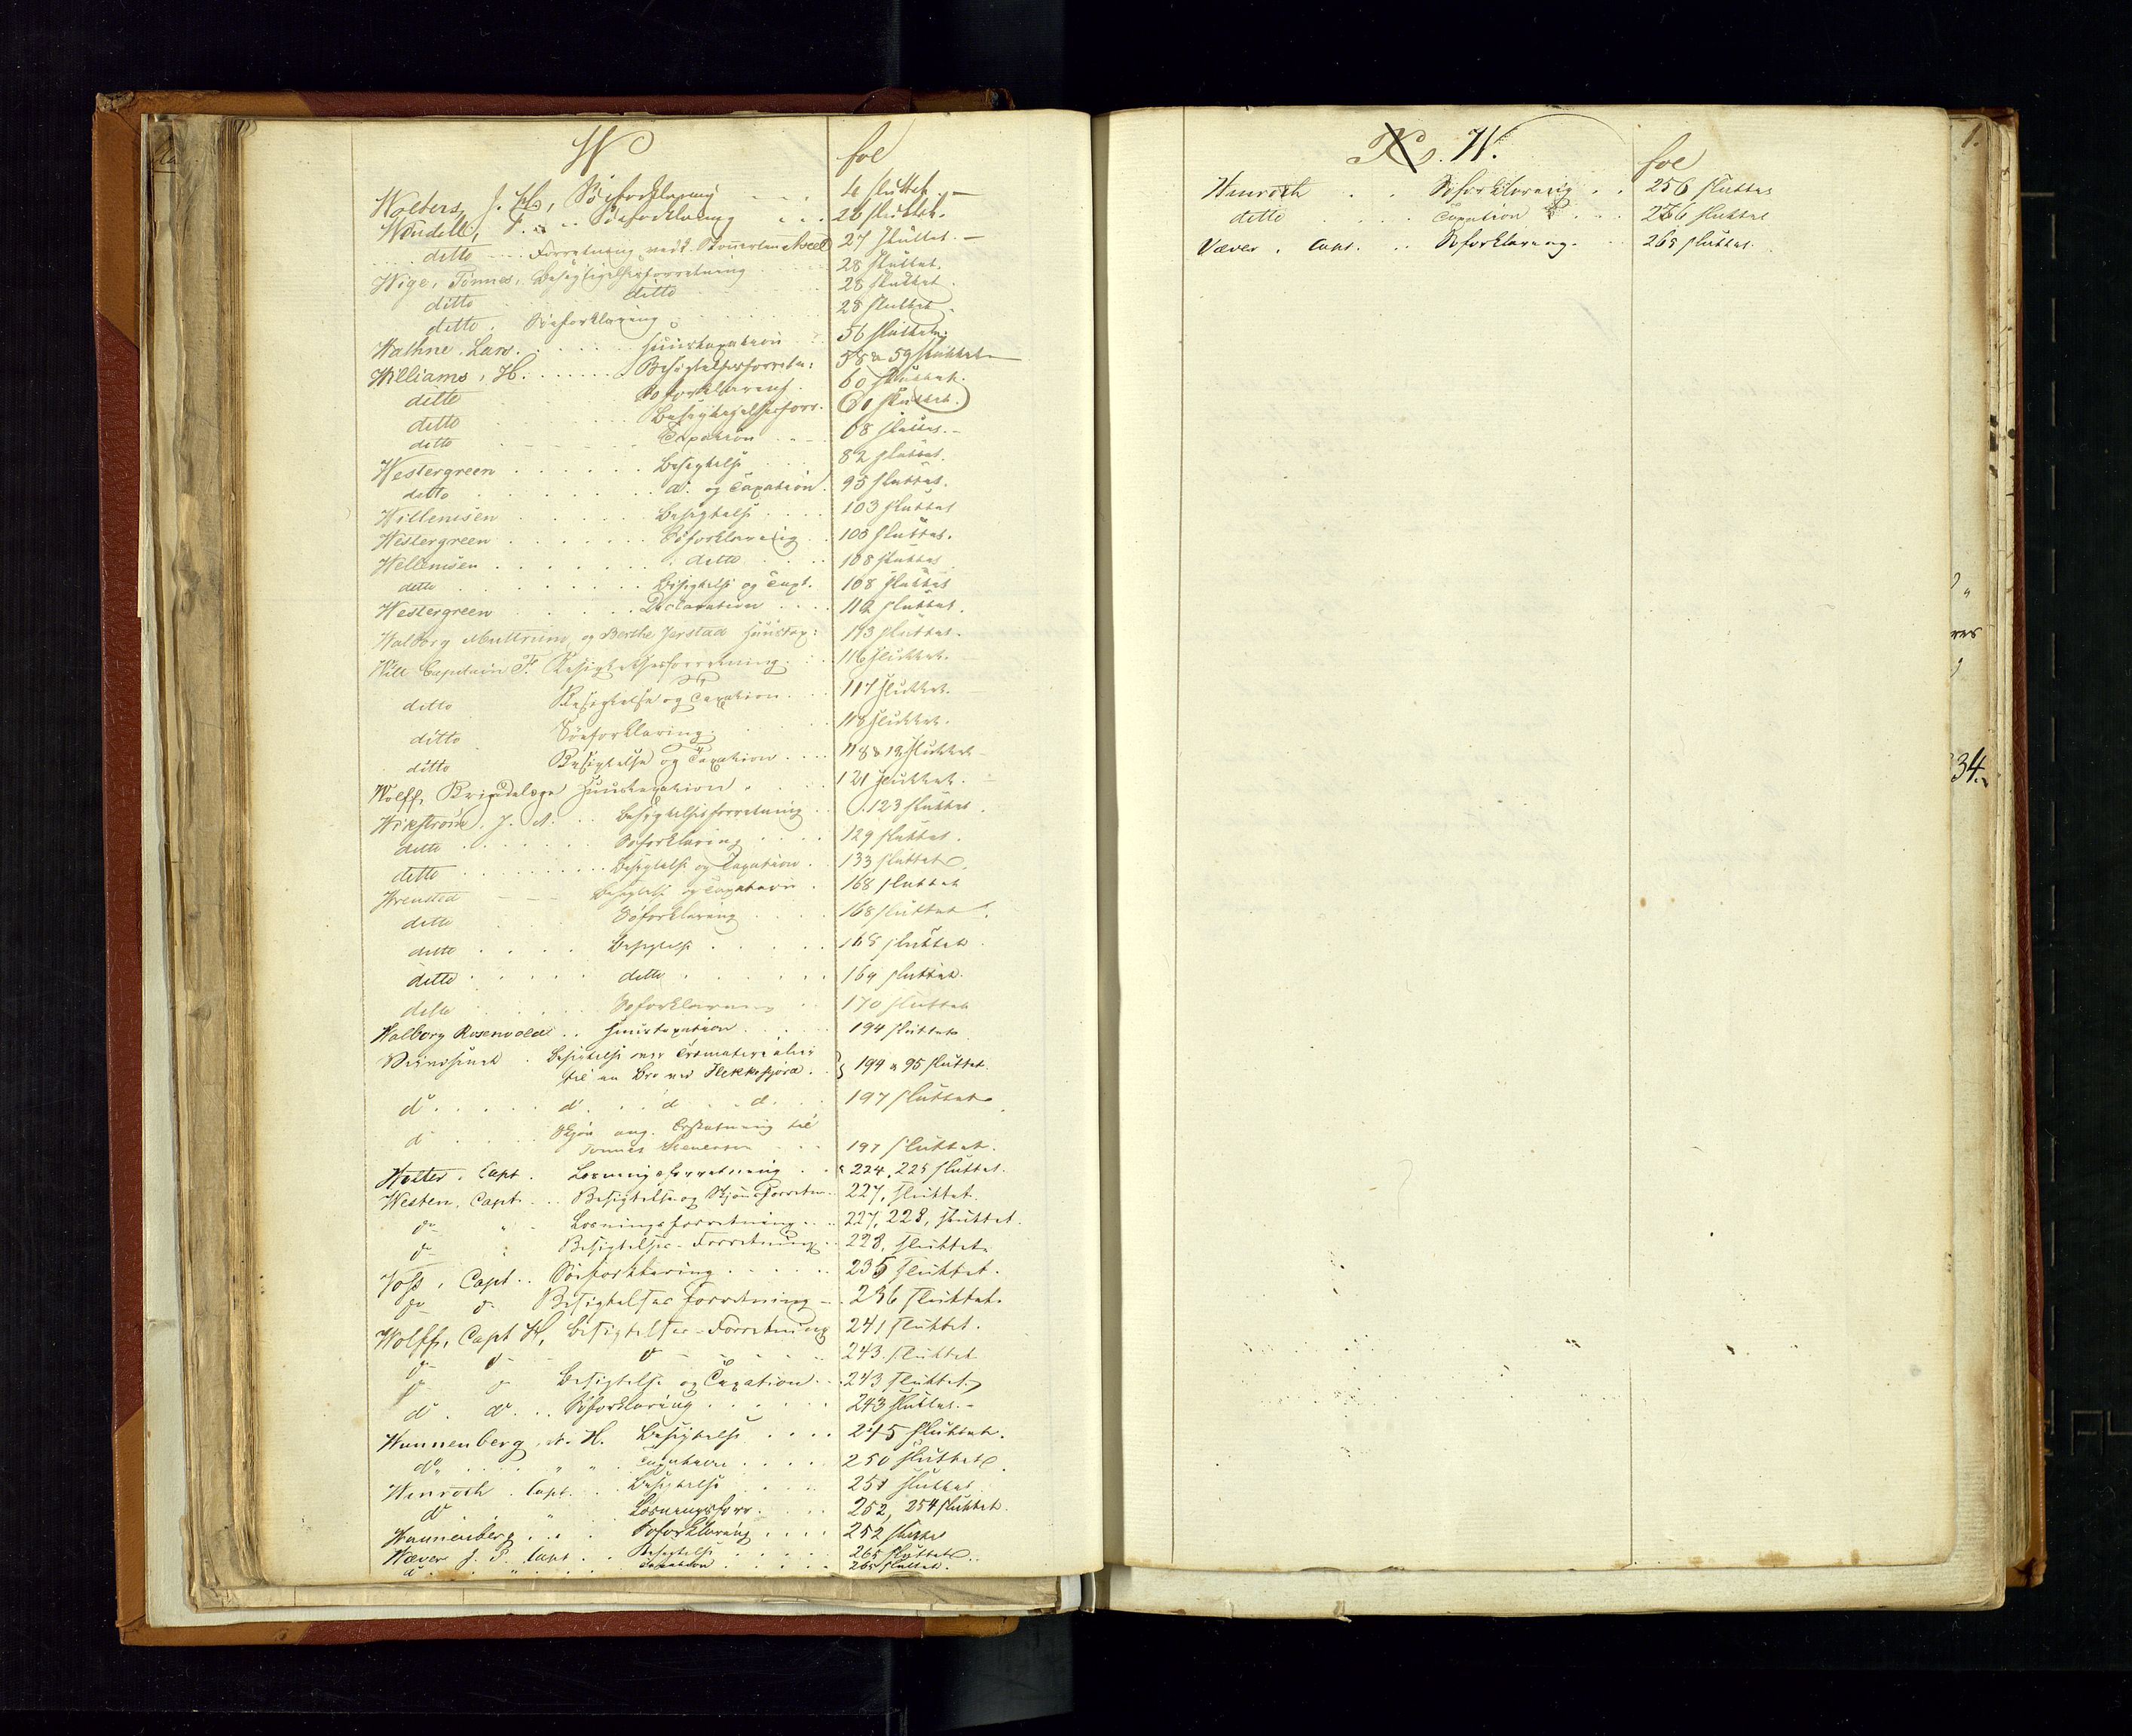 W fol
Wolters, J. H., Söeforklaring 4 sluttet.
Wendell, T. Söeforklaring 26 sluttet.
ditto Forretning vedk. Skonnerten Axel 27 sluttet.
Wige, Tönnes, Besigtigelsesforretning 28 sluttet.
ditto ditto 28 sluttet.
ditto. Söeforklaring 28 sluttet
Wathne. Lars. Huustaxation 56 sluttet.
Williams, H. Besigtelsesforretn: 58 & 59 sluttet
ditto Söforklaring. 60 sluttet.
ditto Besigtigelsesforr. 61 sluttet.
ditto Taxation 68 sluttet.
Westergreen Besigtelse 82 sluttet.
ditto do. og Taxation. 95 sluttet.
Willemsen Besigtelse 103 sluttet
Westergreen Söforklaring 100 sluttet.
Willemsen ditto 108 sluttet
ditto Besigtelse og Taxt. 108 sluttet
Westergreen Declaration 112 sluttet.
Walborg og Berthe Jerstad Huustax: 113 sluttet.
Will Capitain F. Besigtelsesforretning. 116 sluttet.
ditto Besigtelse og Taxation. 117 sluttet.
ditto Söeforklaring. 118 sluttet.
ditto Besigtelse og Taxation 118 & 19 sluttet
Wolff, Brigadelæge Huustaxation 121 sluttet.
Wikström, J. A. Besigtelsesforretning 123 sluttet.
ditto Söforklaring 129 sluttet.
ditto Besigtelse og Taxation. 133 sluttet.
Wrensted Besigtelse og Taxation 168 sluttet
ditto Söforklaring 168 sluttet.
ditto Besigtelse 168 sluttet.
ditto ditto 169 sluttet.
ditto Söforklaring 170 sluttet
Walborg Rosenvold Huustaxation 194 sluttet
Besigtelse over Trematerialier
til en Bro ved Flekkefjord. } 194 & 95 sluttet.
do. d. d. d. 197 sluttet
d Skjön ang. Erstatning til
Tönnes 197 sluttet.
Wolter, Capt. Losningsforretning 224, 225 sluttet.
Westen, Capt. Besigtelse og Skjöns Forretn. 227, sluttet.
do Losningsforretning 227, 228, sluttet.
do Besigtelses-Forretning 228, sluttet.
Voss, Capt. Söeforklaring 235 sluttet.
do do Besigtelses forretning 236 sluttet.
Wolff, Capt H, Besigtelses-Forretning 241 sluttet.
do do do 243 sluttet
do do Besigtelse og Taxation 243 sluttet.
do. do. Söforklaring 243 sluttet.
Wannenberg, A. H. Besigtelse 245 sluttet.
do " " Taxation 250 sluttet
Winroth. Capt. Besigtelse 251 sluttet
do " Losningsforr. 252, 254 sluttet.
Wannenberg Söforklaring 252 sluttet
Wæver J. P. Capt Besigtelse 265 sluttet
d " Taxation 265 sluttet.
W. fol
Winroth Söforklaring 256 sluttet
ditto Taxation 256 sluttet
Væver. Capt. Söforklaring. 265 sluttet.
1.
34.